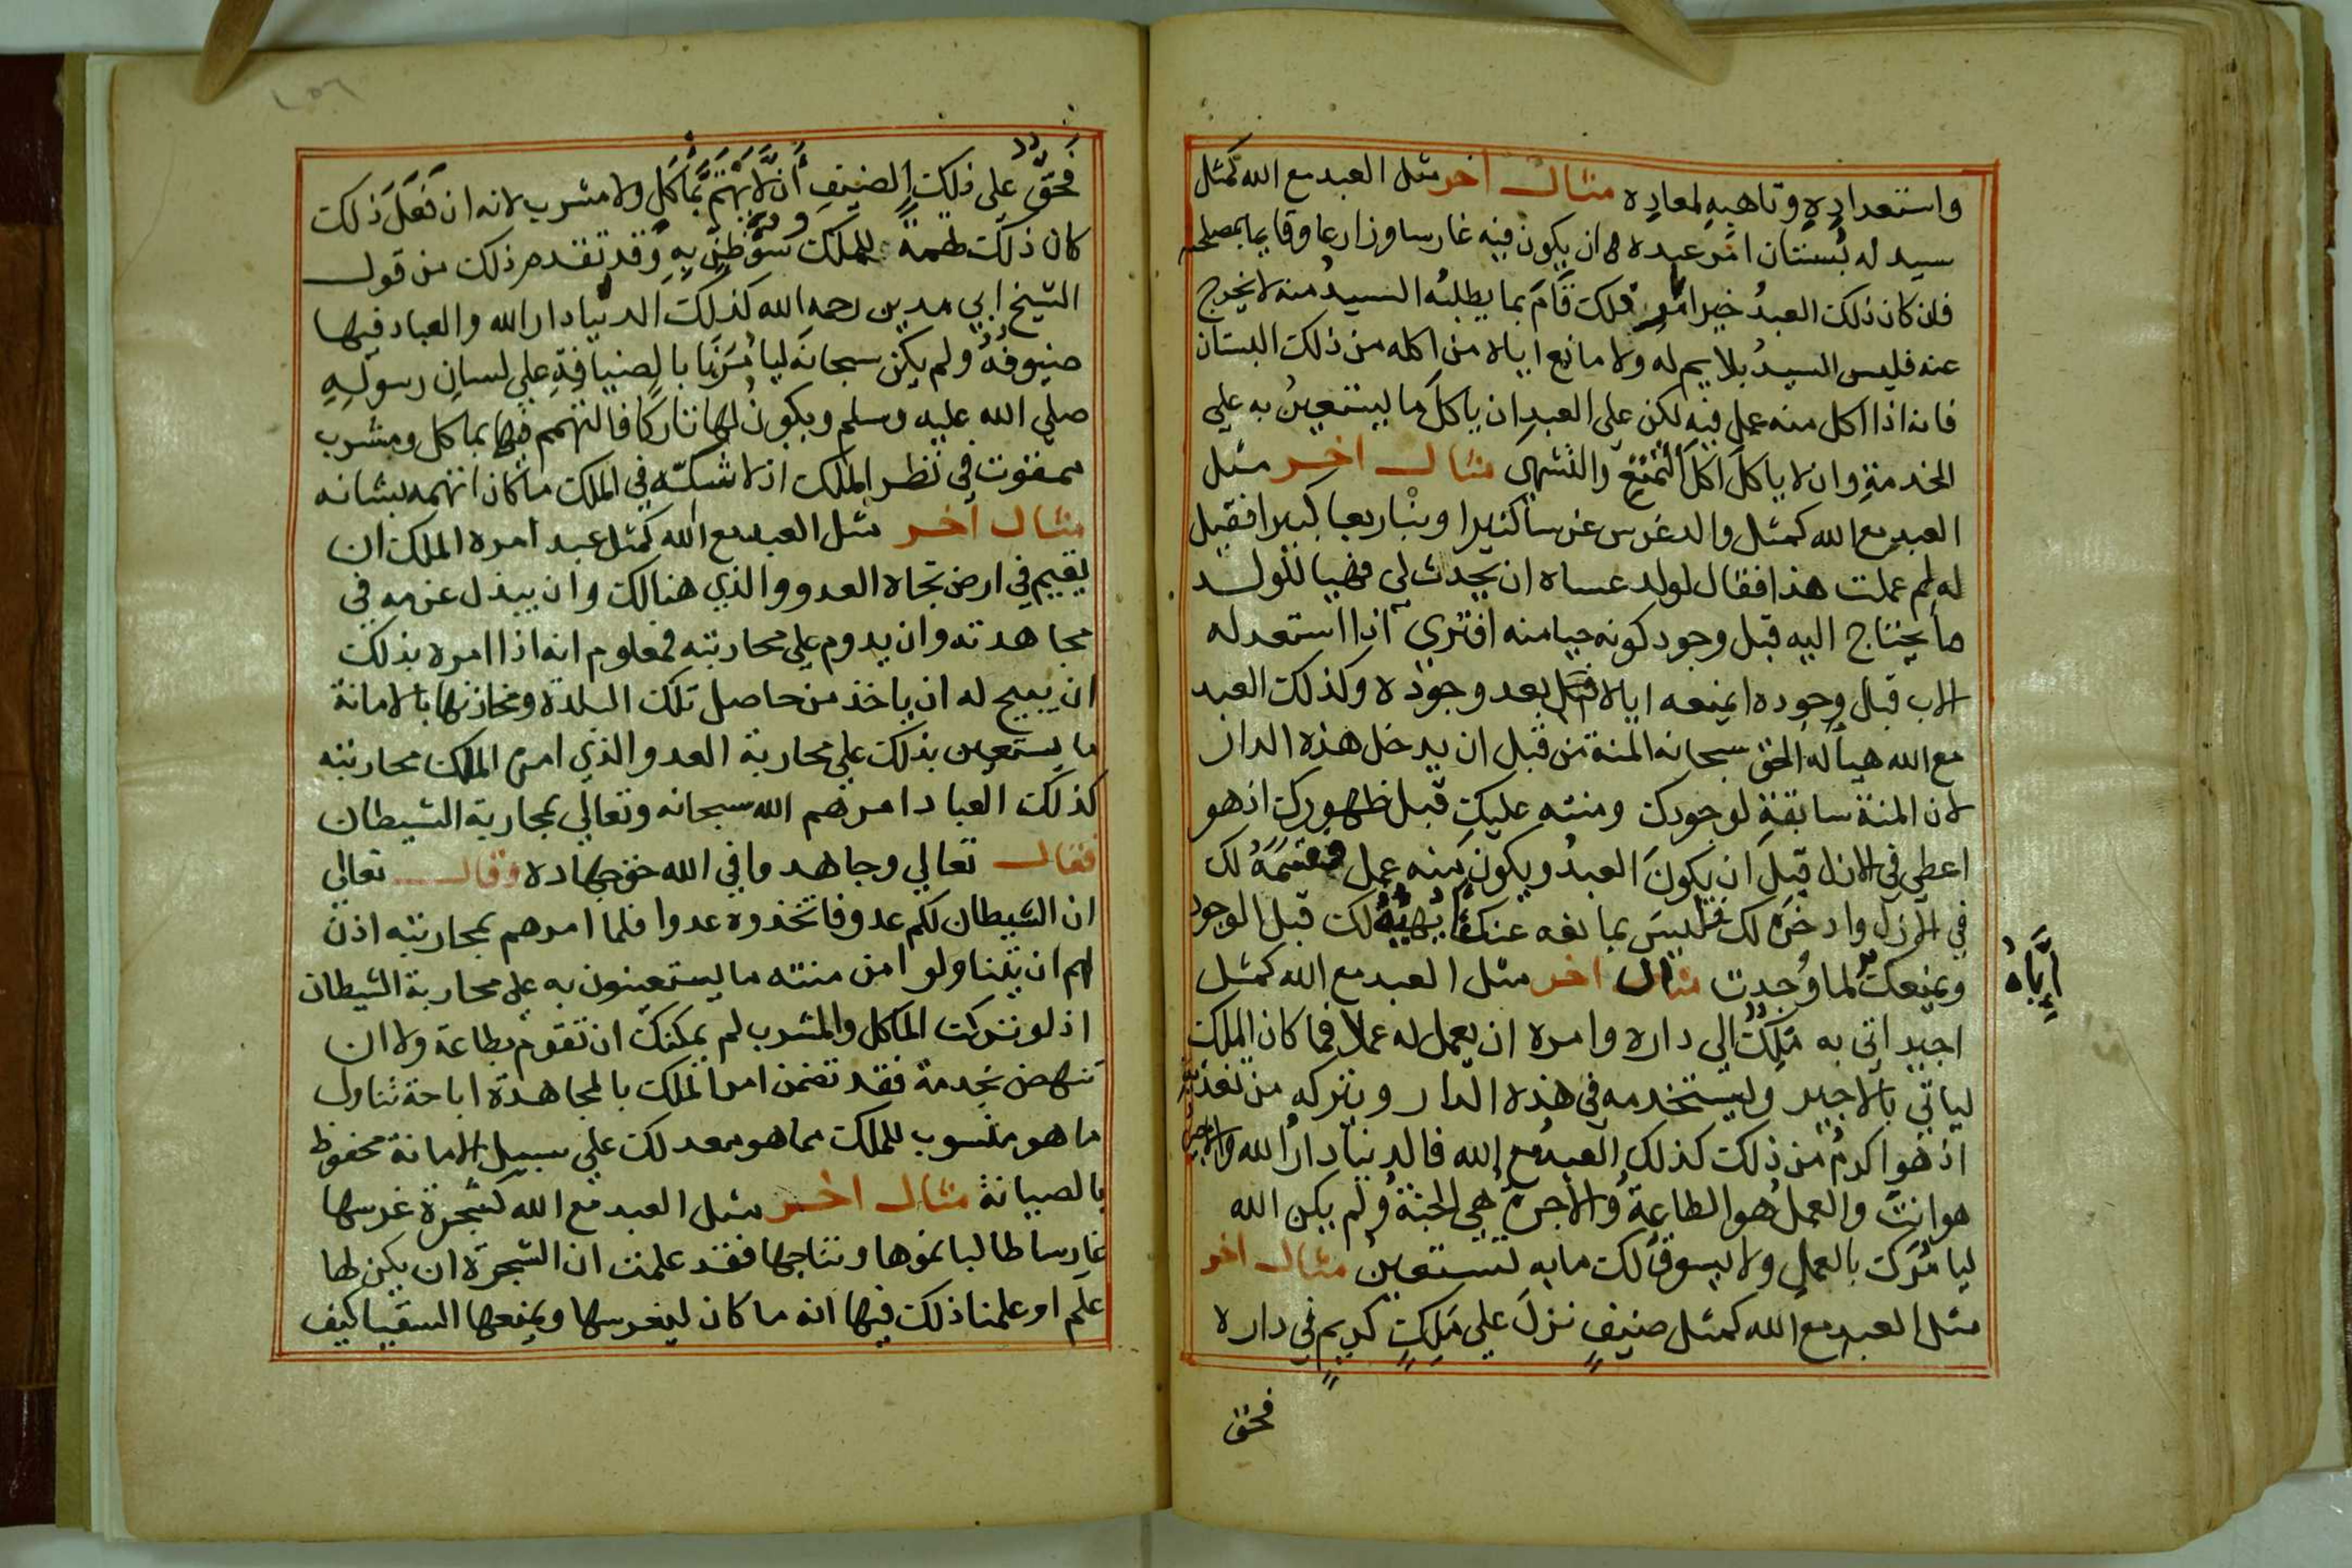 واستعداده وتاهبه لمعاده مثال اخر مثل العبد مع الله كمثل
سيد له بستان امر عبده ان يكون فيه غارسا وزارعا وقايما بمصلحته
فان كان ذلك العبد خيرا قام بما يطلبه السيد منه لا يخرج
عنه فليس السيد بلايم له ولا مانع اياه من اكله من ذلك البستان
فانه اذا اكل منه عمل فيه لكن على العبد ان ياكل ما ليستعين به علي
الخدمة وان لا ياكل اكل التمتع والتشهي مثال اخر مثل
العبد مع الله كمثل والد غرس غرسا كثيرا وبنا ربعا كبيرا فقيل
له لم عملت هذا فقال لولد عساه ان يحدث لي فهيا للولد
ما يحتاج اليه قبل وجود كونه حبا منه افترى اذا استعد له
الاب قبل وجوده ايمنعه اياه بعد وجوده وكذلك العبد
مع الله هيا له الحق سبحانه المنة من قبل ان يدخل هذه الدار
لان المنة سابقة لوجودك ومنته عليك قبل ظهورك اذ هو
اعطى في الازل قبل ان يكون العبد ويكون منه عمل قسمه لك
في الازل وادخره لك فليس بمانعه عنك يهيئه لك قبل الوجود
ويمنعك لما وجدت مثال اخر مثل العبد مع الله كمثل
اياه
اجير اتي به ملك الى داره وامره ان يعمل له عملا فما كان الملك
لياتي بالاجير وليستخدمه في هذه الدار ويتركه من تغذية
اذ هو اكرم من ذلك كذلك العبد مع الله فالدنيا دار الله والاجير
هو انت والعمل هو الطاعة والاجرة هي الجنة ولم يكن الله
ليامرك بالعمل ولا يسوق لك ما به تستعين مثال اخر
مثل العبد مع الله كمثل ضيف نزل علي ملك كريم في داره
فحق
فحق علي ذلك الضيف ان لا يهتم بماكل ولا مشرب لانه ان فعل ذلك
كان ذلك للملك سوء ظن به وقد تقدم ذلك من قول
الشيخ ابي مدين رحمه الله كذلك الدنيا دار الله والعباد فيها
ضيوفه ولم يكن سبحانه ليامرنا بالضيافة علي لسان رسوله
صلي الله عليه وسلم ويكون لها تاركا فالتهمم فيها بماكل ومشرب
ممقوت في نظر الملك اذ لا شكه في الملك ما كان اتهمه بشانه
مثال اخر مثل العبد مع الله كمثل عبد امره الملك ان
يقيم في ارض تجاه العدو والذي هنالك وان يبذل عزمه في
مجاهدته وان يدوم علي محاربته فمعلوم انه اذا امره بذلك
ان يبيح له ان ياخذ من حاصل تلك البلدة ومخازنها بالامانة
ما يستعين بذلك علي محاربة العدو الذي امره الملك محاربته
كذلك العباد امرهم الله سبحانه وتعالي بمحاربة الشيطان
فقال تعالي وجاهدوا في الله حق جهاده وقال تعالي
ان الشيطان لكم عدو فاتخذوه عدوا فلما امرهم بمحاربته اذن
لهم ان يتناولوا من منته ما يستعينون به علي محاربة الشيطان
اذ لو تركت الماكل والمشرب لم يمكنك ان تقوم بطاعة ولا ان
تنهض بخدمة فقد تضمن امر الملك بالمجاهدة اباحة تناول
ما هو منسوب للملك مما هو معد لك علي سبيل الامانة محفوظ
بالصيانة مثال اخر مثل العبد مع الله كشجرة غرسها
غارسا طالبا نموها ونتاجها فقد علمت ان الشجرة ان يكن لها
علم او علمنا ذلك فيها انه ما كان ليغرسها ويمنعها السقيا كيف